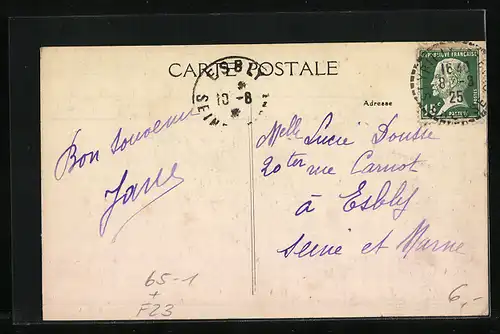 CARTE POSTALE
ESBLY
10-8
SEINE
RÉPUBLIQUE FRANÇAISE
16
8-8
25
15
POSTES
Adresse
Bon souvenir
Melle Lucie Dousse
20ter rue Carnot
à Esbly
Seine et Marne
65-1
+
F23
6,-